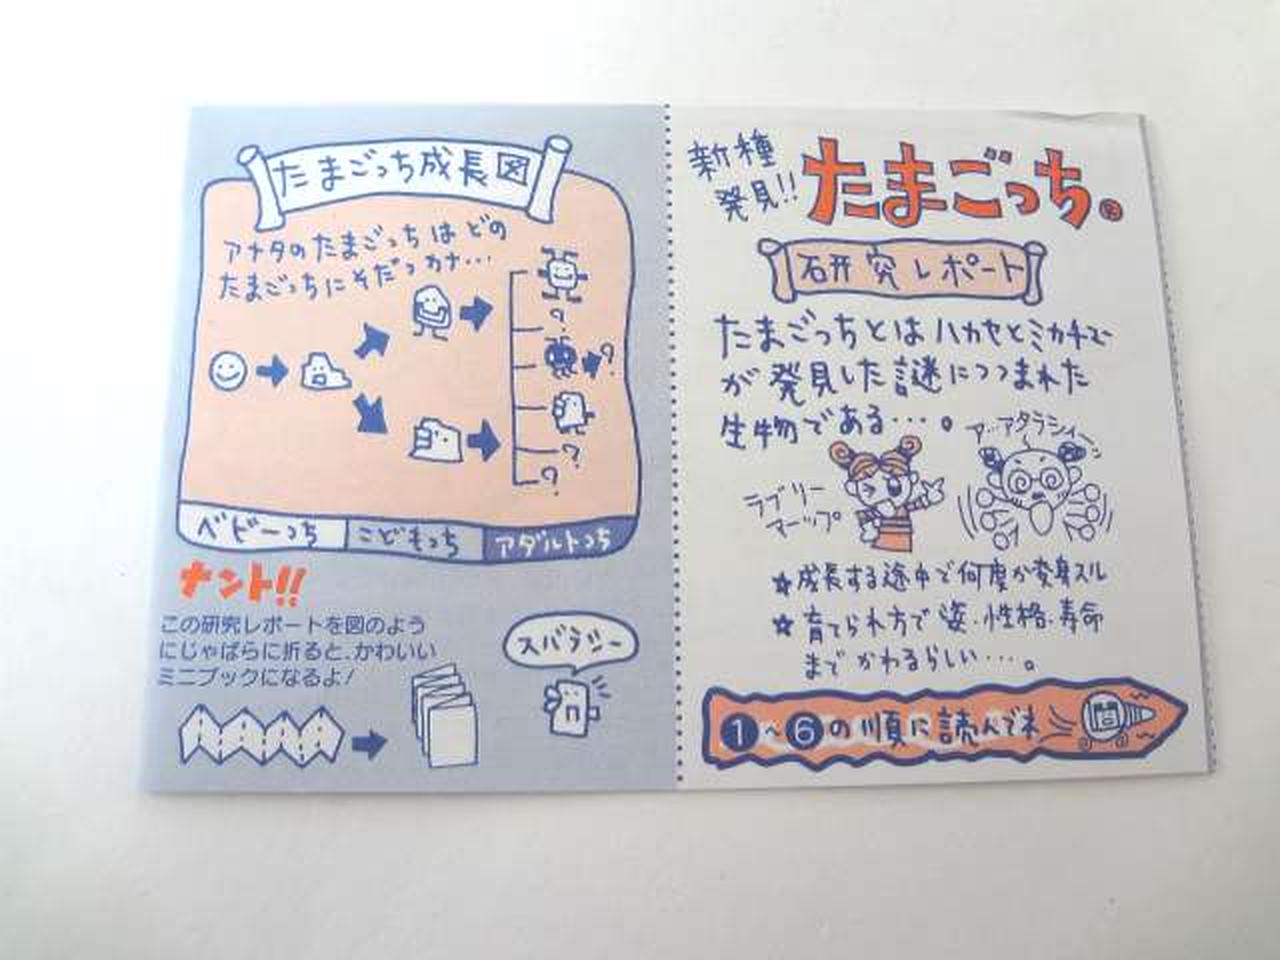 たまごっち成長図
アナタのたまごっちはどの
たまごっちにそだつカナ…
?
?
?
?
ベビーっち
こどもっち
アダルトっち
ナント!!
この研究レポートを図のよう
にじゃばらに折ると、かわいい
ミニブックになるよ!
スバラシー
新種
発見!!
たまごっち
研究レポート
たまごっちとはハカセとミカチュー
が発見した謎につつまれた
生物である…。
ア…アタラシイ…
ラブリー
マーップ
☆成長する途中で何度か変身スル
☆育てられ方で姿・性格・寿命
までかわるらしい…。
1〜6の順に読んでネ